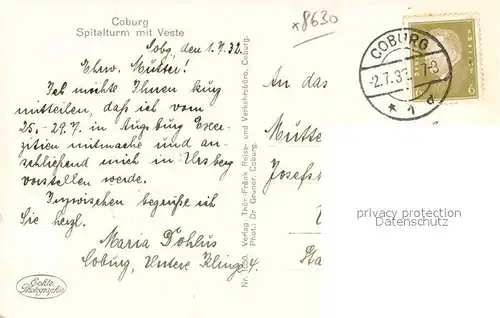 Coburg
Spitalturm mit Veste
Cobg, den 1.7.32.
Ehrw. Mutter!
Ich möchte Ihnen kurz
mitteilen, daß ich vom
25.-29.7. in Augsburg Exer-
zitien mitmache und an-
schließend mich in Ursberg
vorstellen werde.
Inzwischen begrüße ich
Sie herzl.
Maria Dohlus
Coburg, Untere Klinge 4.
Echte Photographie
Verlag Thür.-Fränk. Reise- und Verkehrsbüro, Coburg.
Photo: Dr. Gruner, Coburg.
*8630
An das
Mutter
Josefs
Sta
COBURG
-2.7.32. 7-8
* 1 d
6 6
privacy protection
Datenschutz